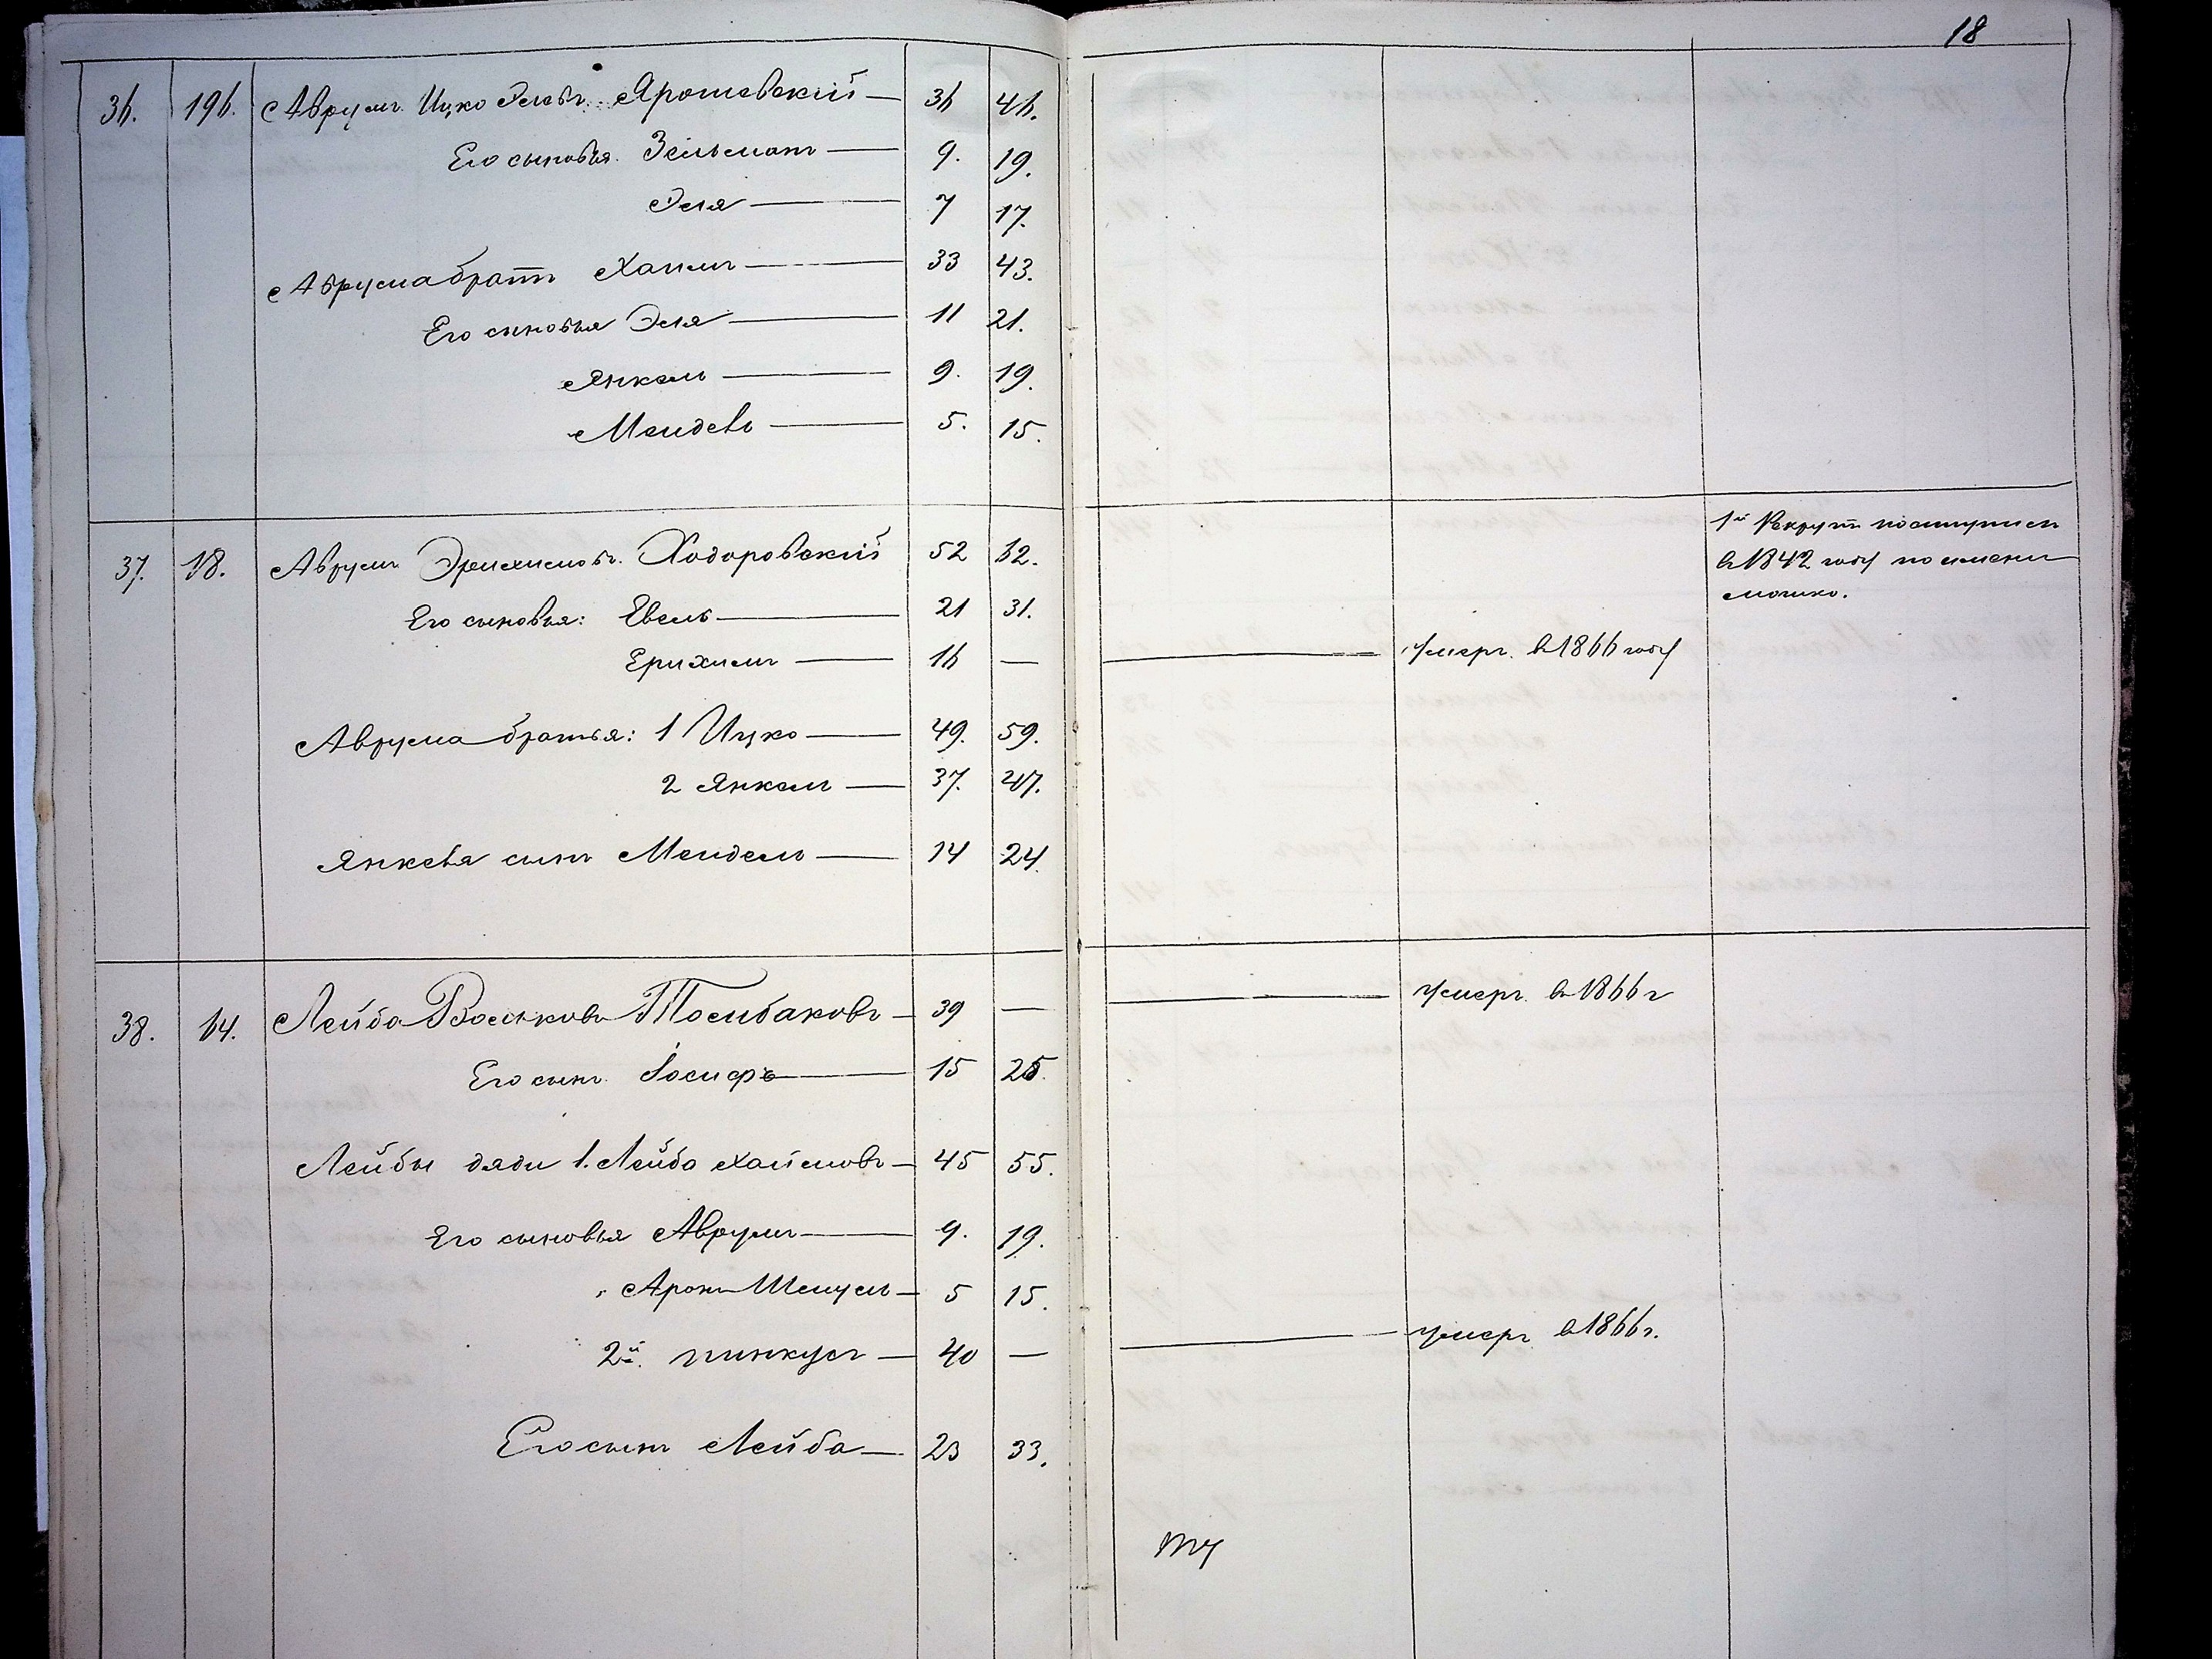 18
36. 196. Аврумъ Ицко Элевъ Ярошевскій — 36 46.
Его сыновья Зельманъ — 9. 19.
Эля — 7 17.
Аврума братъ Хаимъ — 33 43.
Его сыновья Эля — 11 21.
Янкель — 9. 19.
Мендель — 5. 15.
37. 18. Аврумъ Ерихимовъ Ходоровскій 52 62.
1й Рекрутъ поступилъ
в 1842 году по имени
Мошко.
Его сыновья: Евель — 21 31.
Ерихимъ — 16 — — умеръ в 1866 году
Аврума братья: 1 Ицко — 49. 59.
2 Янкель — 37. 47.
Янкеля сынъ Мендель — 14 24.
38. 64. Лейба Вольковъ — 39 — — умеръ в 1866 г
Его сынъ Іосифъ — 15 25.
Лейбы дяди 1. Лейба Хаймовъ — 45 55.
Его сыновья Аврумъ — 9. 19.
Аронъ Шмуль — 5 15.
2й. Пинкусъ — 40 — — умеръ в 1866 г.
Его сынъ Лейба — 23 33.